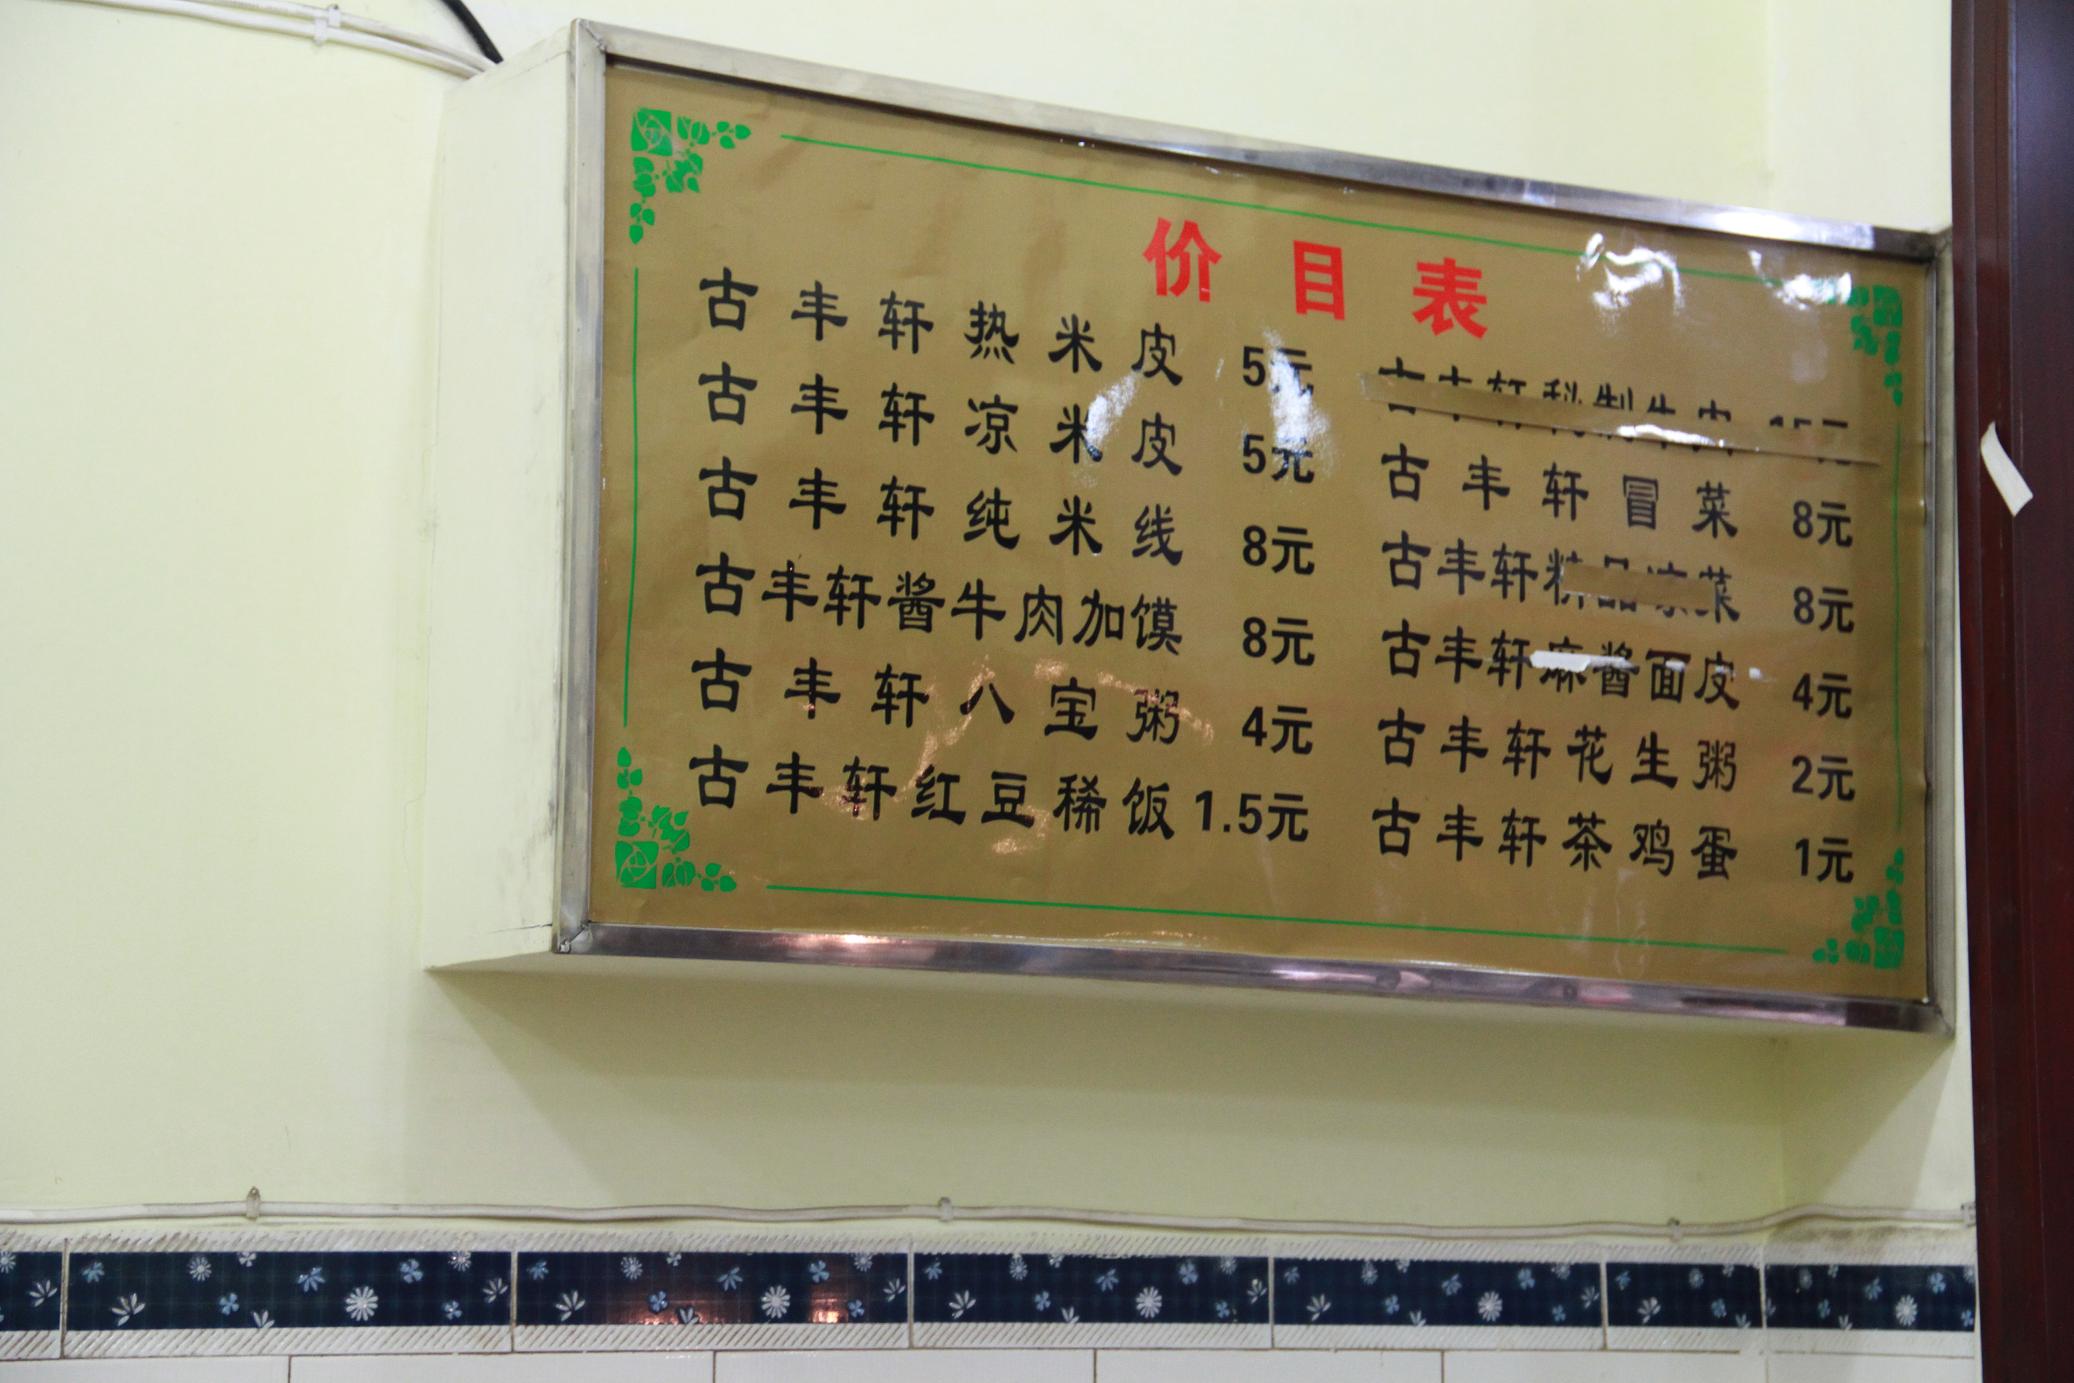 价目表
古丰轩热米皮 5元
古丰轩凉米皮 5元
古丰轩纯米线 8元
古丰轩酱牛肉加馍 8元
古丰轩八宝粥 4元
古丰轩红豆稀饭 1.5元
古丰轩秘制牛皮 15元
古丰轩冒菜 8元
古丰轩精品凉菜 8元
古丰轩麻酱面皮 4元
古丰轩花生粥 2元
古丰轩茶鸡蛋 1元